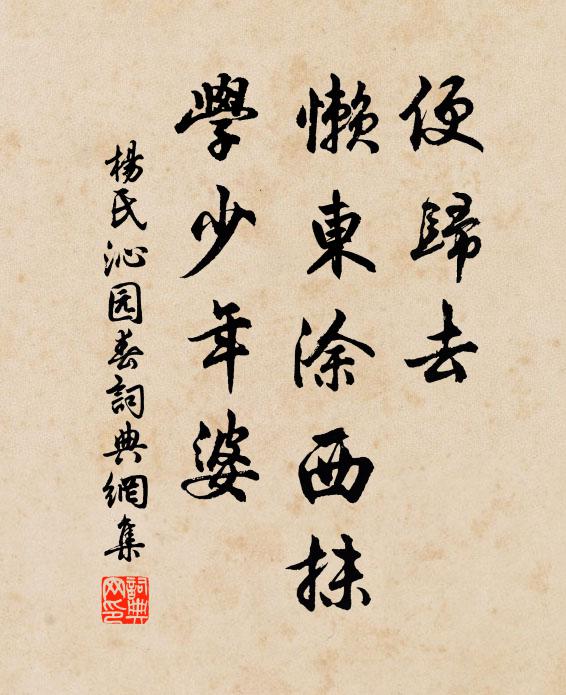 便歸去
懶東涂西抹
學少年婆
楊氏沁园春詞典網集
詞典网印